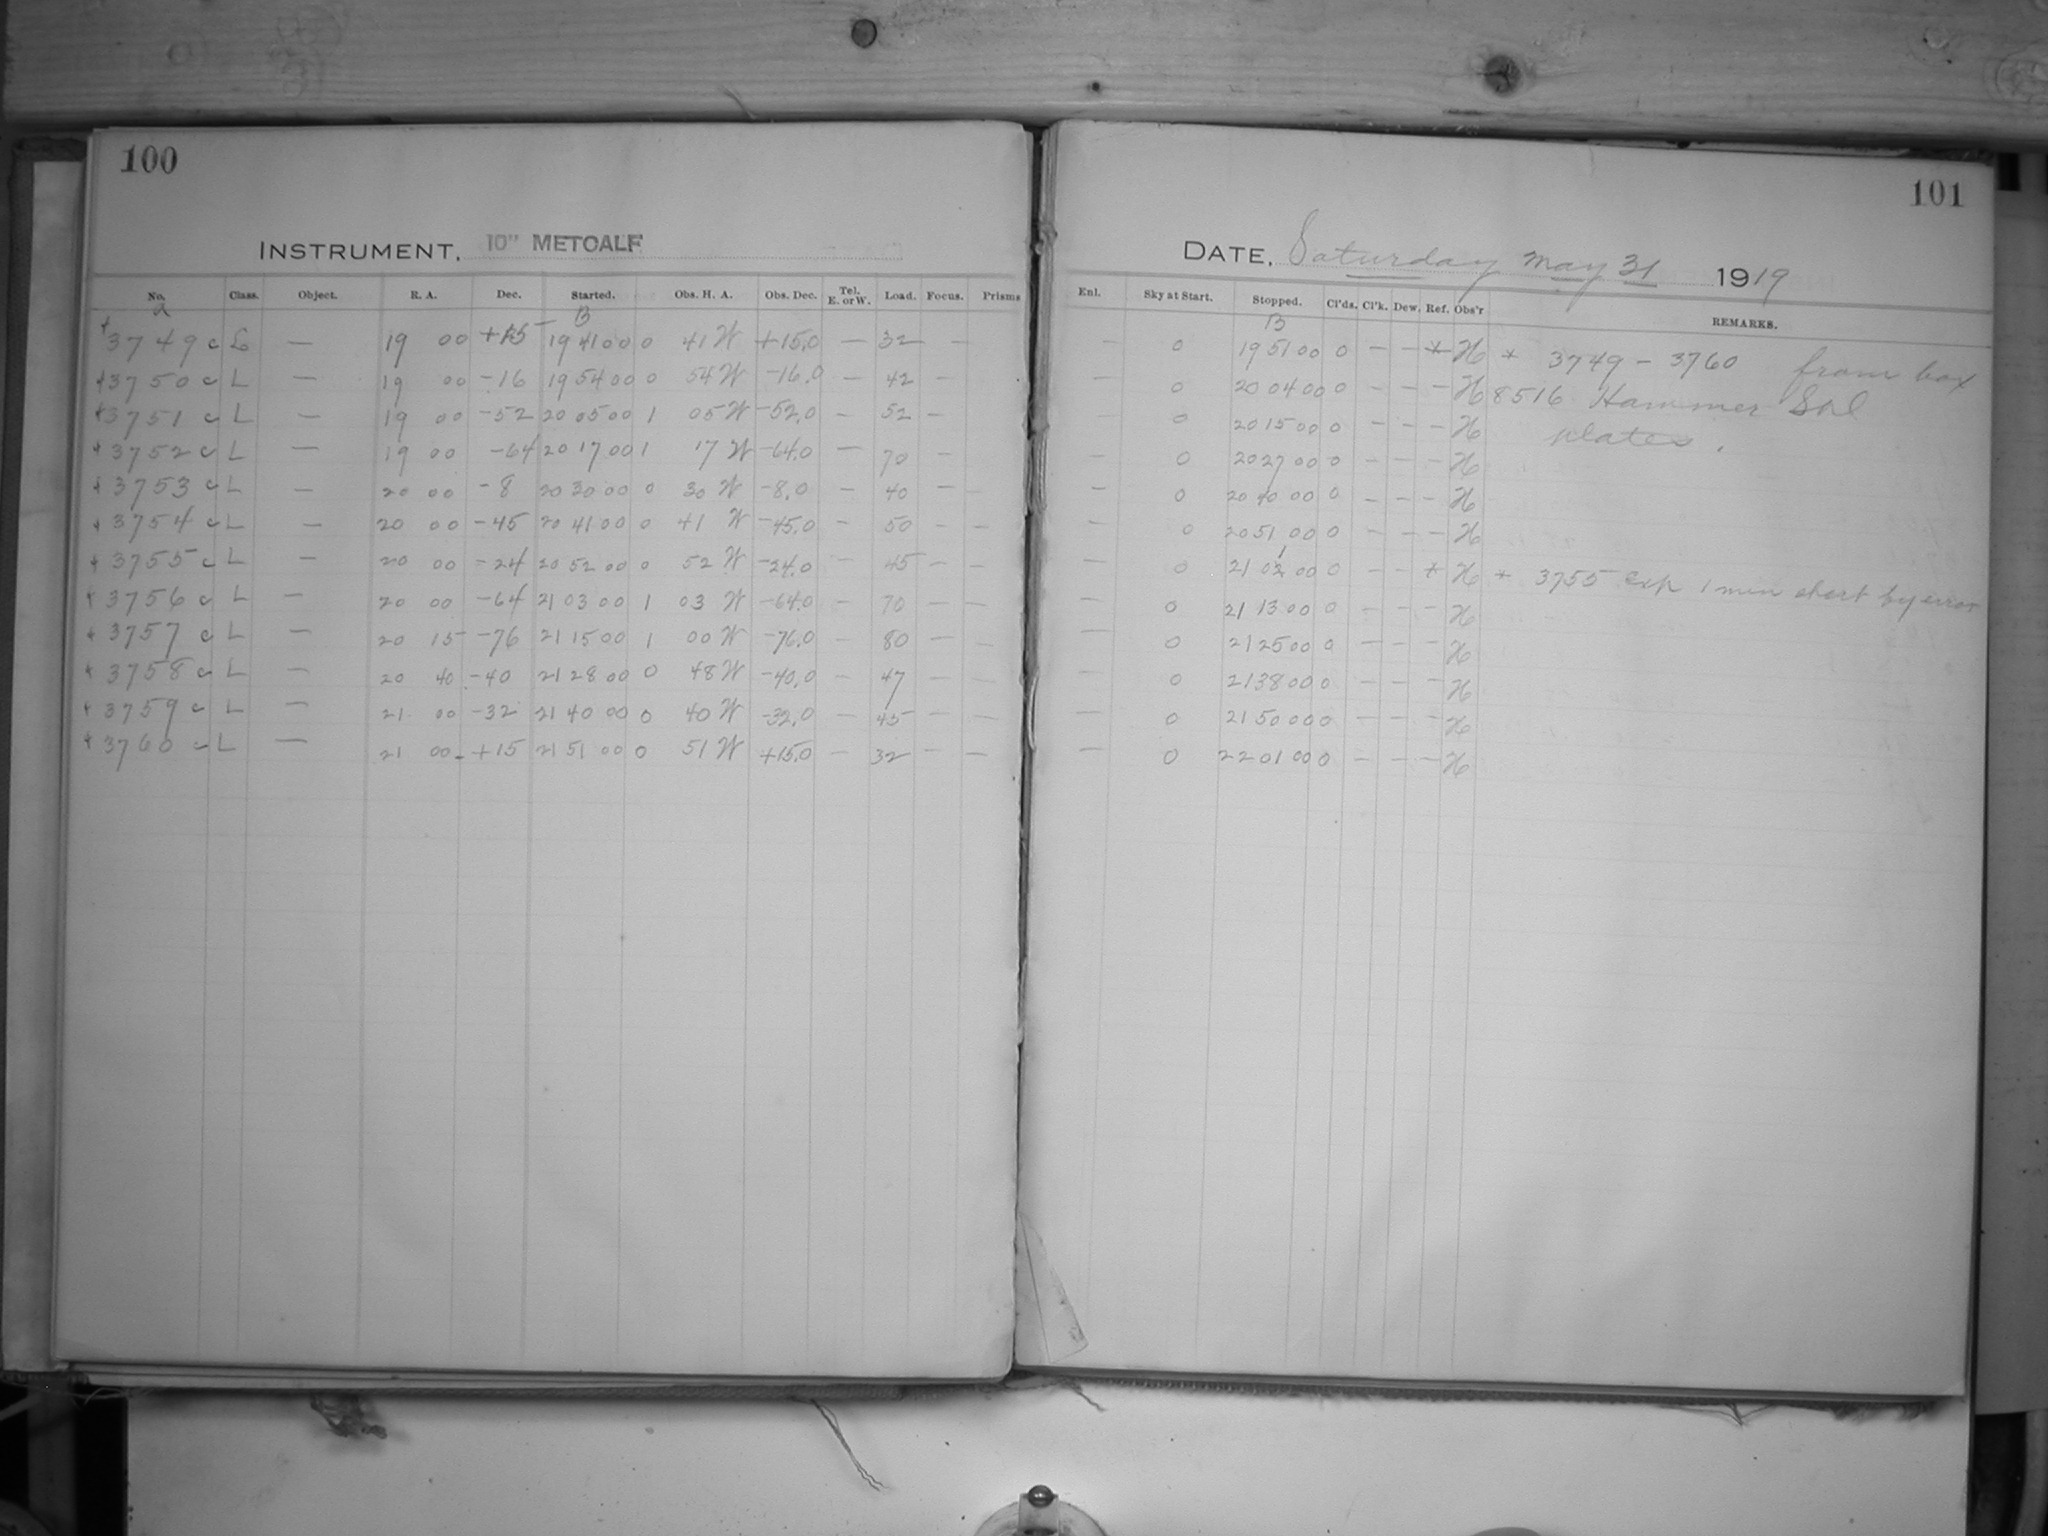 100
INSTRUMENT, 10" METCALF
No. Class. Object. R. A. Dec. Started. Obs. H. A. Obs. Dec. Tel. E. or W. Load. Focus. Prisms
a B
*3749 c L — 19 00 +15 19 41 00 0 41 W +15.0 — 32 —
*3750 c L — 19 00 -16 19 54 00 0 54 W -16.0 — 42 —
*3751 c L — 19 00 -52 20 05 00 1 05 W -52.0 — 52 —
*3752 c L — 19 00 -64 20 17 00 1 17 W -64.0 — 70 —
*3753 c L — 20 00 -8 20 30 00 0 30 W -8.0 — 40 — —
*3754 c L — 20 00 -45 20 41 00 0 41 W -45.0 — 50 — —
*3755 c L — 20 00 -24 20 52 00 0 52 W -24.0 — 45 — —
*3756 c L — 20 00 -64 21 03 00 1 03 W -64.0 — 70 — —
*3757 c L — 20 15 -76 21 15 00 1 00 W -76.0 — 80 — —
*3758 c L — 20 40 -40 21 28 00 0 48 W -40.0 — 47 — —
*3759 c L — 21 00 -32 21 40 00 0 40 W -32.0 — 45 — —
*3760 c L — 21 00 +15 21 51 00 0 51 W +15.0 — 32 — —
101
DATE, Saturday May 31 1919
Enl. Sky at Start. Stopped. Cl'ds. Cl'k. Dew. Ref. Obs'r REMARKS.
B
— 0 19 51 00 0 — — * H * 3749 - 3760 from box
— 0 20 04 00 0 — — — H 8516 Hammer
— 0 20 15 00 0 — — — H plates.
— 0 20 27 00 0 — — — H
— 0 20 40 00 0 — — — H
— 0 20 51 00 0 — — — H
— 0 21 02 00 0 — — * H * 3755 exp 1 min short by error
— 0 21 13 00 0 — — — H
— 0 21 25 00 0 — — — H
— 0 21 38 00 0 — — — H
— 0 21 50 00 0 — — — H
— 0 22 01 00 0 — — — H